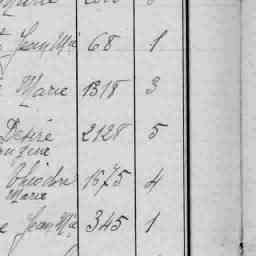 Jean Mie 68 1
Marie 1318 3
Désiré 2128 5
Théodore 1675 4
Marie
Jean Mie 345 1